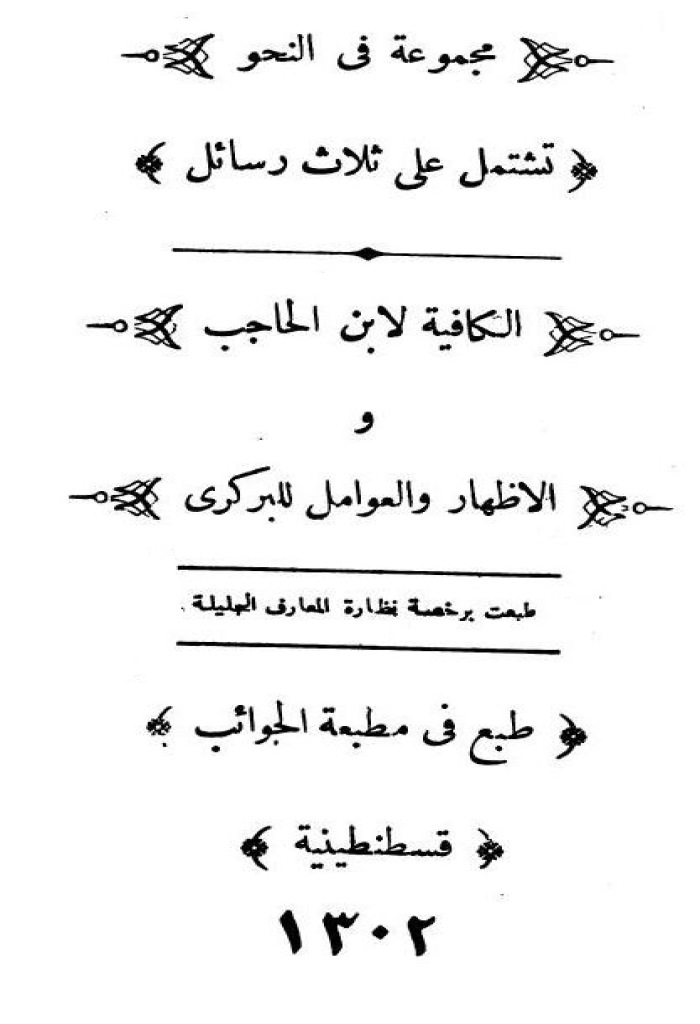 مجموعة فى النحو
تشتمل على ثلاث رسائل
الكافية لابن الحاجب
و
الاظهار والعوامل للبركوى
طبعت برخصة نظارة المعارف الجليلة
طبع فى مطبعة الجوائب
قسطنطينية
١٣٠٢